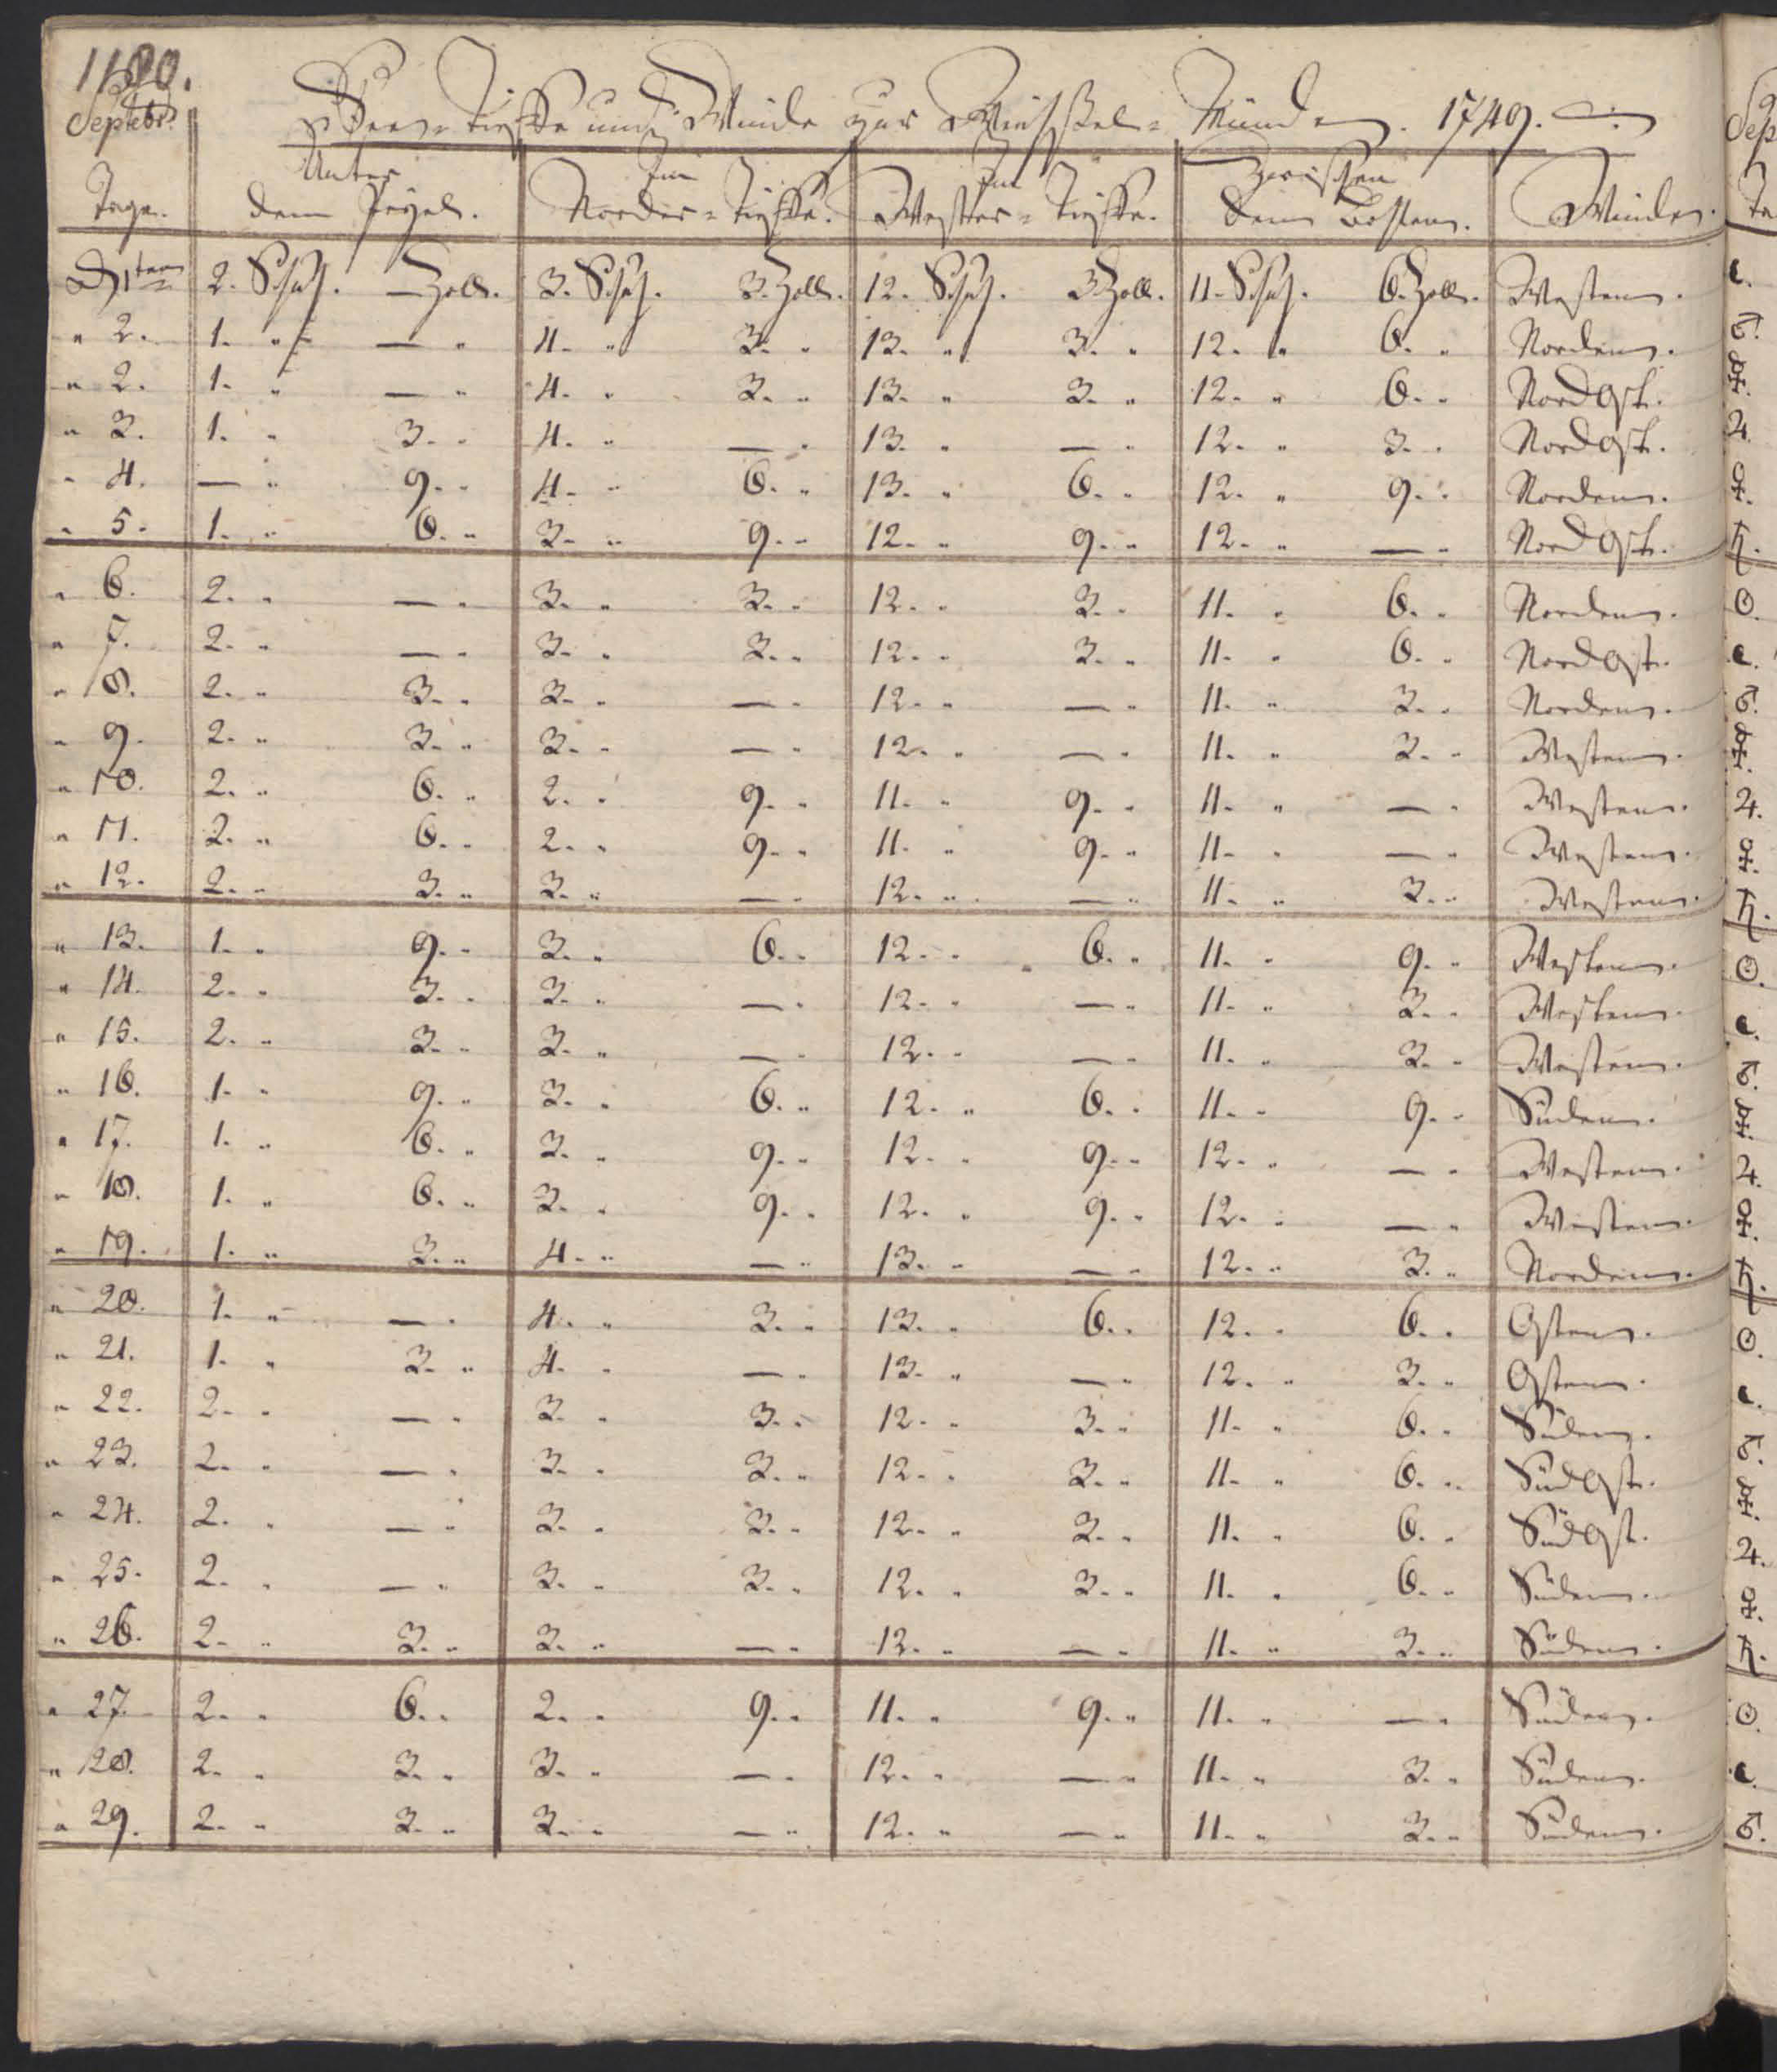 1180.
Septebr.
Waßer-Tieffe und Winde zur Weichßel-Münde. 1749.
Tage. Unter dem Pegel. Im Norder-Tieffe. Im Wester-Tieffe. Zwischen dem Bosten. Winde.
D 1ten 2. Schuh. — Zoll. 3. Schuh. 3. Zoll. 12. Schuh. 3 Zoll. 11. Schuh. 6. Zoll. Westen.
" 2. 1. " — " 4. " 3. " 13. " 3. " 12. " 6. " Norden.
" 2. 1. " — " 4. " 3. " 13. " 3. " 12. " 6. " NordOst.
" 3. 1. " 3. " 4. " — " 13. " — " 12. " 3. " NordOst.
" 4. — " 9. " 4. " 6. " 13. " 6. " 12. " 9. " Norden.
" 5. 1. " 6. " 3. " 9. " 12. " 9. " 12. " — " NordOst.
" 6. 2. " — " 3. " 3. " 12. " 3. " 11. " 6. " Norden.
" 7. 2. " — " 3. " 3. " 12. " 3. " 11. " 6. " NordOst.
" 8. 2. " 3. " 3. " — " 12. " — " 11. " 3. " Norden.
" 9. 2. " 3. " 3. " — " 12. " — " 11. " 3. " Westen.
" 10. 2. " 6. " 2. " 9. " 11. " 9. " 11. " — " Westen.
" 11. 2. " 6. " 2. " 9. " 11. " 9. " 11. " — " Westen.
" 12. 2. " 3. " 3. " — " 12. " — " 11. " 3. " Westen.
" 13. 1. " 9. " 3. " 6. " 12. " 6. " 11. " 9. " Westen.
" 14. 2. " 3. " 3. " — " 12. " — " 11. " 3. " Westen.
" 15. 2. " 3. " 3. " — " 12. " — " 11. " 3. " Westen.
" 16. 1. " 9. " 3. " 6. " 12. " 6. " 11. " 9. " Süden.
" 17. 1. " 6. " 3. " 9. " 12. " 9. " 12. " — " Westen.
" 18. 1. " 6. " 3. " 9. " 12. " 9. " 12. " — " Westen.
" 19. 1. " 3. " 4. " — " 13. " — " 12. " 3. " Norden.
" 20. 1. " — " 4. " 3. " 13. " 6. " 12. " 6. " Osten.
" 21. 1. " 3. " 4. " — " 13. " — " 12. " 3. " Osten.
" 22. 2. " — " 3. " 3. " 12. " 3. " 11. " 6. " Süden.
" 23. 2. " — " 3. " 3. " 12. " 3. " 11. " 6. " SüdOst.
" 24. 2. " — " 3. " 3. " 12. " 3. " 11. " 6. " SüdOst.
" 25. 2. " — " 3. " 3. " 12. " 3. " 11. " 6. " Süden.
" 26. 2. " 3. " 3. " — " 12. " — " 11. " 3. " Süden.
" 27. 2. " 6. " 2. " 9. " 11. " 9. " 11. " — " Süden.
" 28. 2. " 3. " 3. " — " 12. " — " 11. " 3. " Süden.
" 29. 2. " 3. " 3. " — " 12. " — " 11. " 3. " Süden.